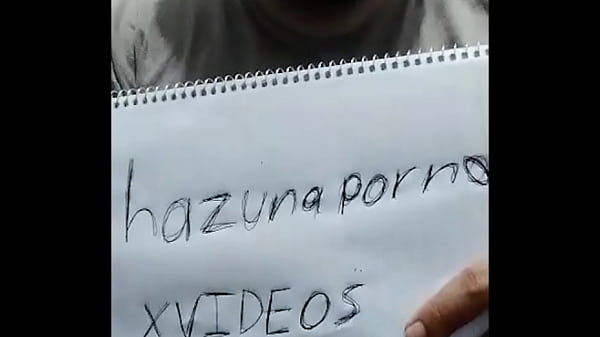 hazunaporno
XVIDEOS